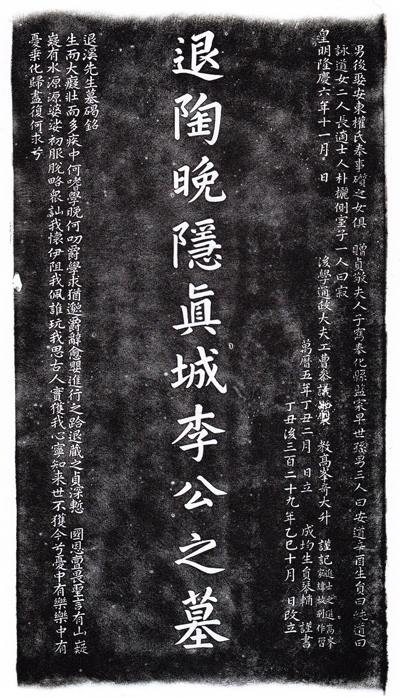 男後娶安東權氏奉事礩之女俱 贈貞敬夫人子寯奉化縣監寀早世孫男三人曰安道辛酉生員曰純道曰
詠道女二人長適士人朴欐側室子一人曰寂
皇明隆慶六年十一月 日
後學通政大夫工曹參議知製 敎高峯奇大升 謹記
萬曆五年丁丑二月 日立 成均生員琴輔 謹書
丁丑後三百二十九年乙巳十月 日改立
退陶晚隱眞城李公之墓
退溪先生墓碣銘
生而大癡壯而多疾中何嗜學晚何叨爵學求猶邈爵辭愈嬰進行之跲退藏之貞深慙 國恩亶畏聖言有山嶷
嶷有水源源婆娑初服脫略衆訕我懷伊阻我佩誰玩我思古人實獲我心寧知来世不獲今兮憂中有樂樂中有
憂乘化歸盡復何求兮